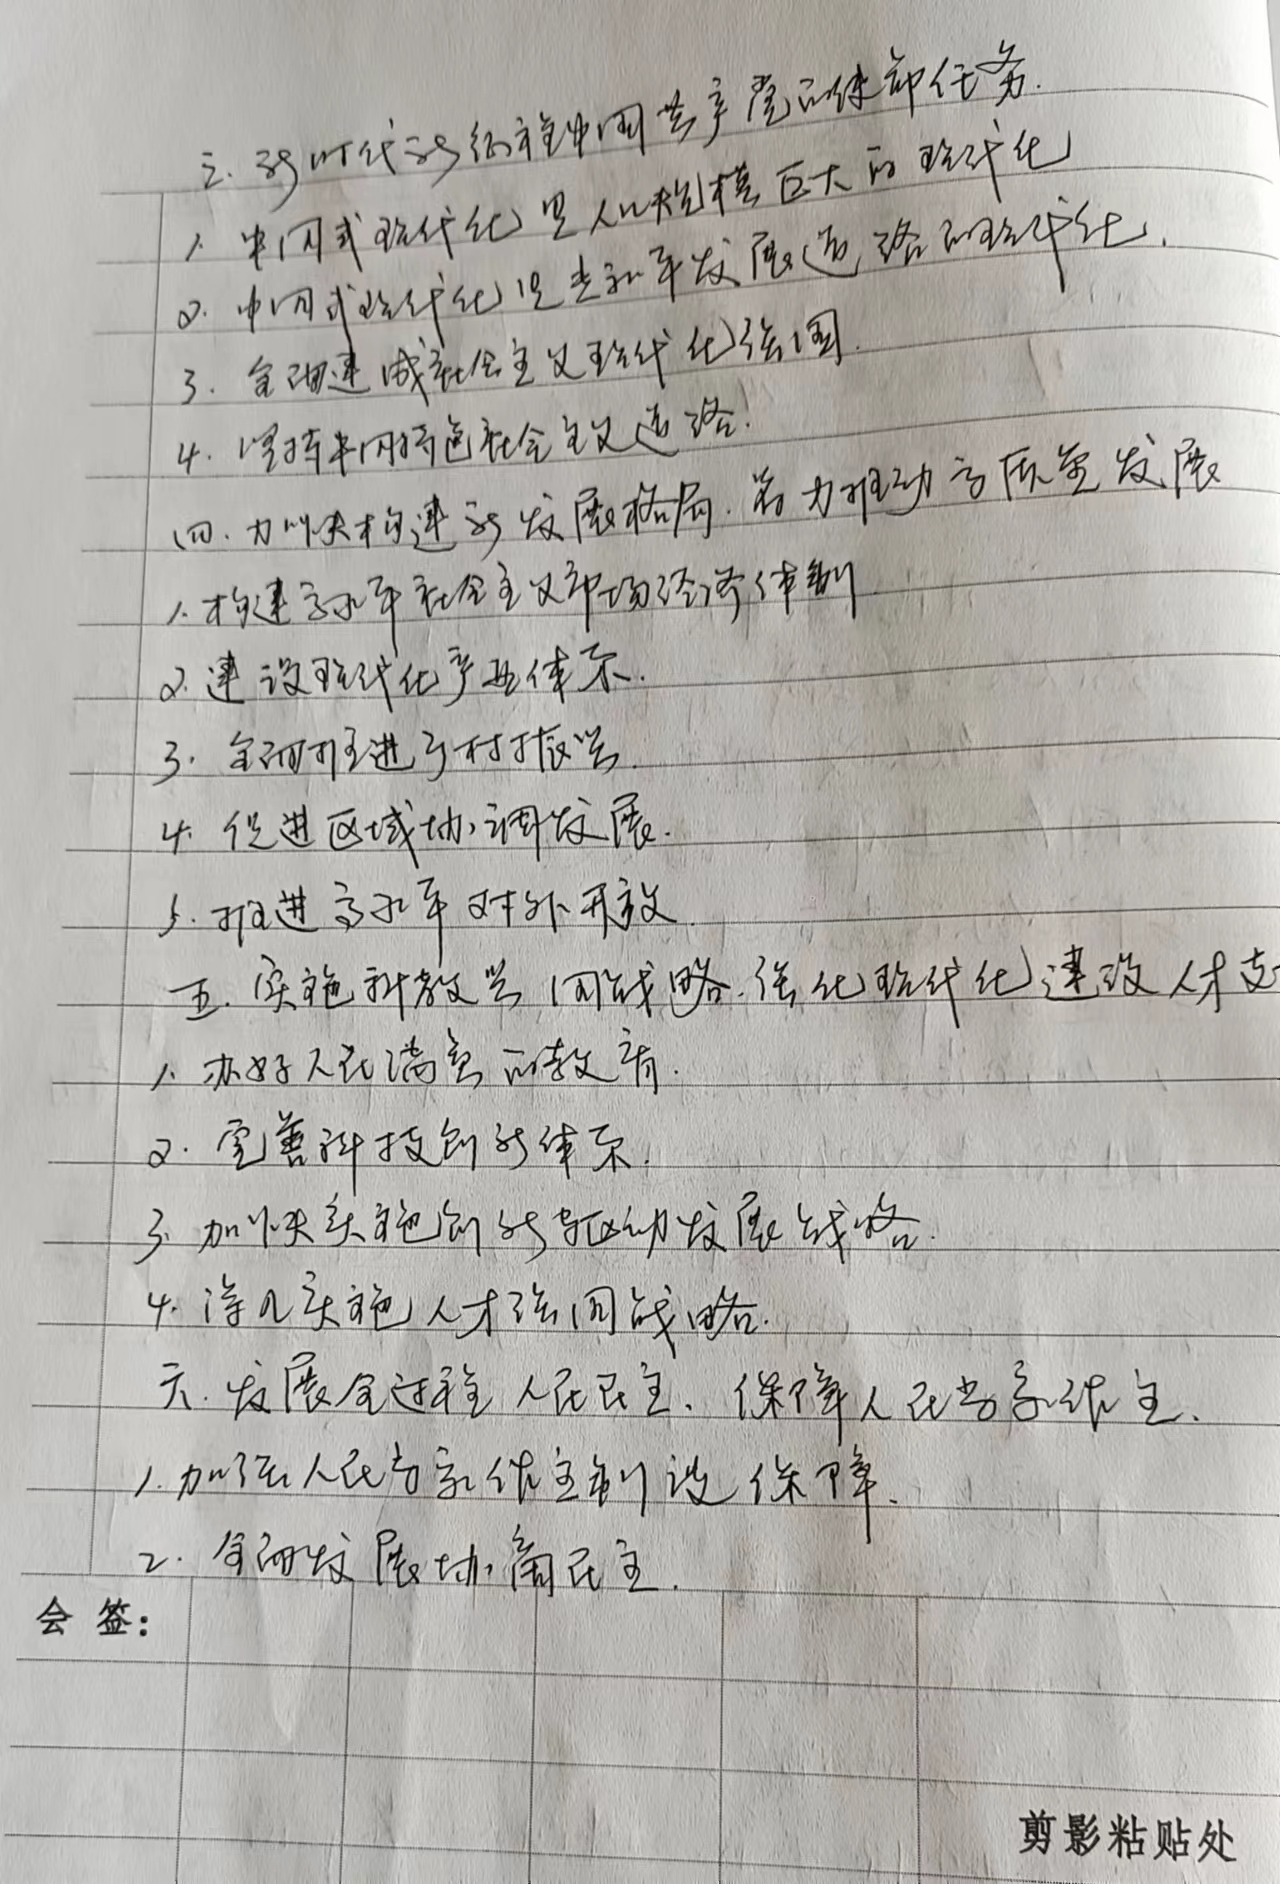 三.新时代新征程中国共产党的使命任务.
1.中国式现代化是人口规模巨大的现代化
2.中国式现代化是走和平发展道路的现代化.
3.全面建成社会主义现代化强国.
4.坚持中国特色社会主义道路.
四.加快构建新发展格局.着力推动高质量发展
1.构建高水平社会主义市场经济体制
2.建设现代化产业体系.
3.全面推进乡村振兴.
4.促进区域协调发展.
5.推进高水平对外开放
五.实施科教兴国战略.强化现代化建设人才支
1.办好人民满意的教育.
2.完善科技创新体系.
3.加快实施创新驱动发展战略.
4.深入实施人才强国战略.
六.发展全过程人民民主.保障人民当家作主.
1.加强人民当家作主制度保障.
2.全面发展协商民主.
会 签:
剪影粘贴处